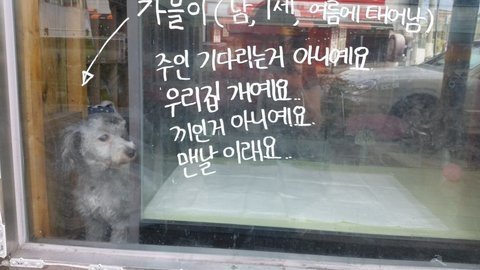 가을이 (남, 1세, 여름에 태어남)
주인 기다리는거 아니예요.
우리집 개예요..
끼인거 아니예요.
맨날 이래요..